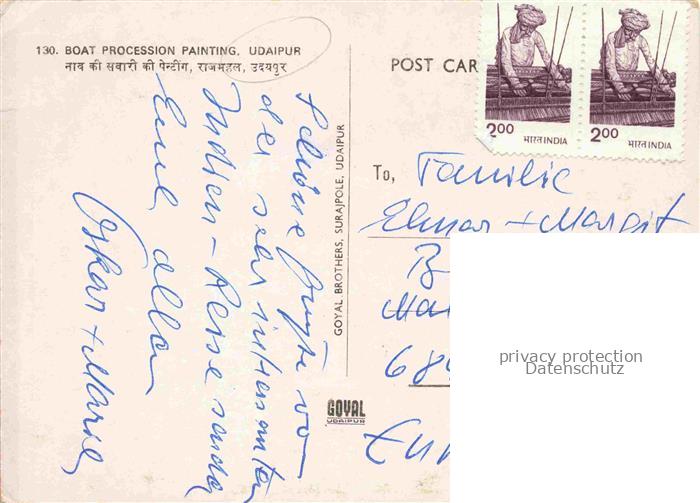 130. BOAT PROCESSION PAINTING, UDAIPUR
नाव की सवारी की पेन्टींग, राजमहल, उदयपुर
POST CAR
2.00
भारत INDIA
2.00
भारत INDIA
Schöne Grüße von
der sehr interessanten
Indien-Reise sendet
Euch allen
Oskar + Maria
GOYAL BROTHERS, SURAJPOLE, UDAIPUR
GOYAL
UDAIPUR
To, Familie
Elmar + Margit
B
Ma
68
Eur
privacy protection
Datenschutz